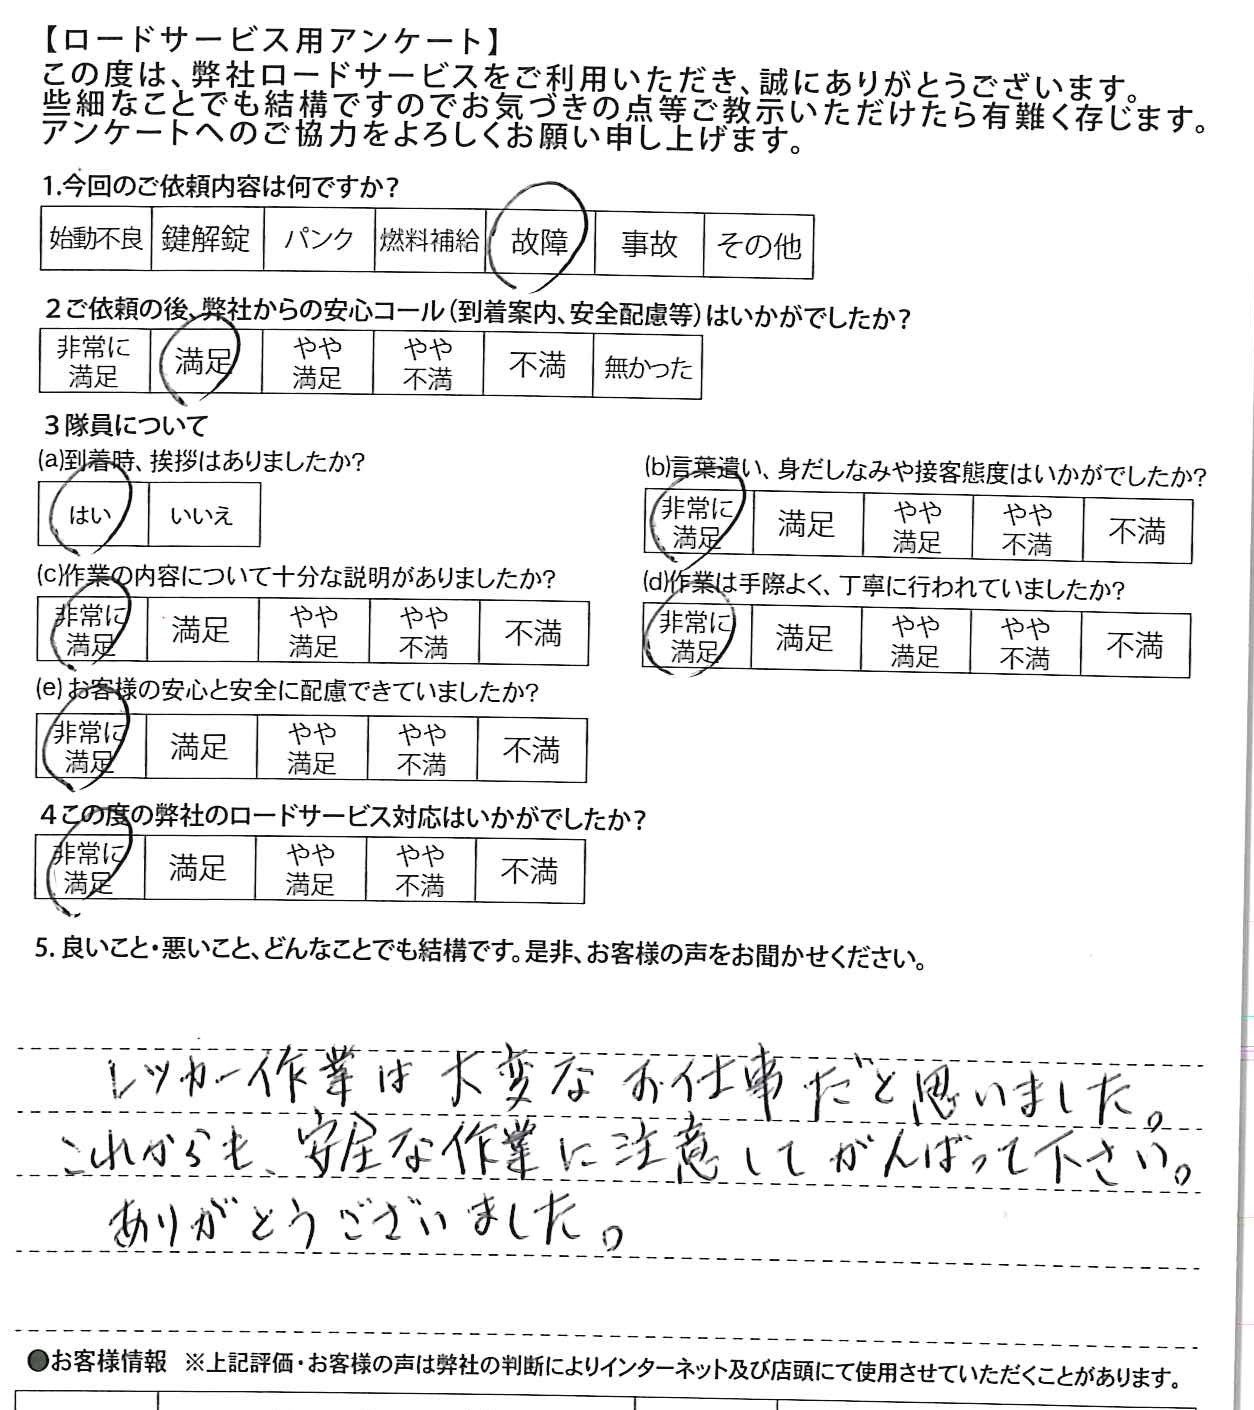 【ロードサービス用アンケート】
この度は、弊社ロードサービスをご利用いただき、誠にありがとうございます。
些細なことでも結構ですのでお気づきの点等ご教示いただけたら有難く存じます。
アンケートへのご協力をよろしくお願い申し上げます。
1.今回のご依頼内容は何ですか?
始動不良 鍵解錠 パンク 燃料補給 故障 事故 その他
2ご依頼の後、弊社からの安心コール(到着案内、安全配慮等)はいかがでしたか?
非常に満足 満足 やや満足 やや不満 不満 無かった
3隊員について
(a)到着時、挨拶はありましたか?
はい いいえ
(b)言葉遣い、身だしなみや接客態度はいかがでしたか?
非常に満足 満足 やや満足 やや不満 不満
(c)作業の内容について十分な説明がありましたか?
非常に満足 満足 やや満足 やや不満 不満
(d)作業は手際よく、丁寧に行われていましたか?
非常に満足 満足 やや満足 やや不満 不満
(e)お客様の安心と安全に配慮できていましたか?
非常に満足 満足 やや満足 やや不満 不満
4この度の弊社のロードサービス対応はいかがでしたか?
非常に満足 満足 やや満足 やや不満 不満
5. 良いこと・悪いこと、どんなことでも結構です。是非、お客様の声をお聞かせください。
レッカー作業は大変なお仕事だと思いました。
これからも、安全な作業に注意してがんばって下さい。
ありがとうございました。
●お客様情報 ※上記評価・お客様の声は弊社の判断によりインターネット及び店頭にて使用させていただくことがあります。